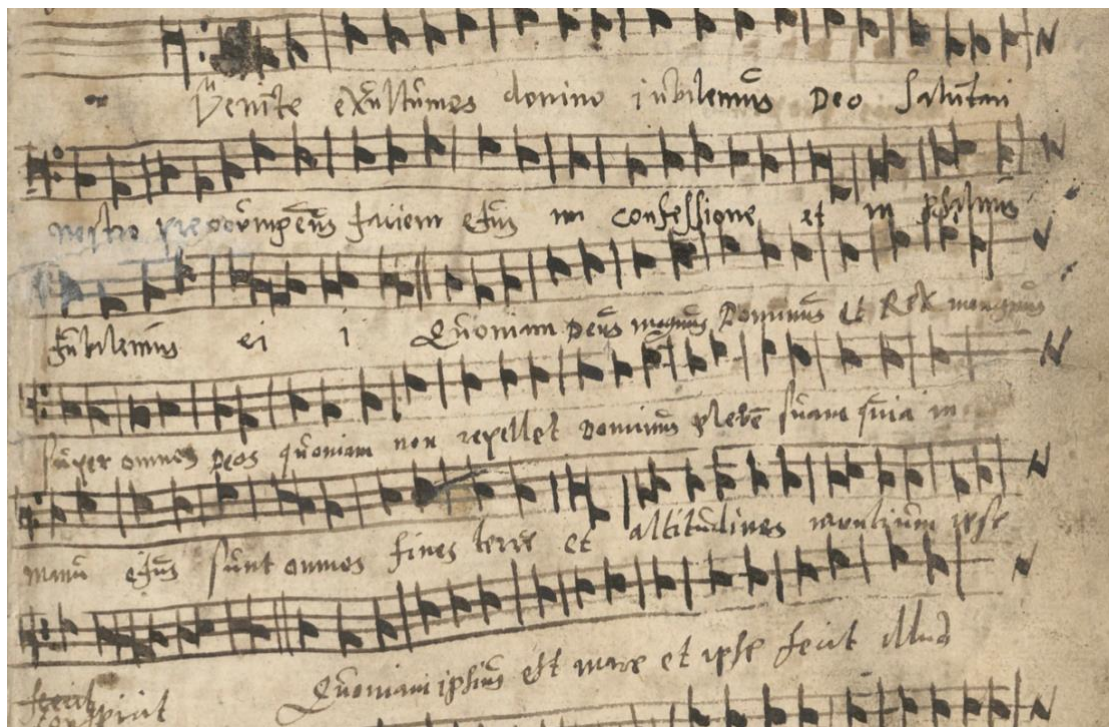 Venite exultemus domino iubilemus Deo Salutari
nostro preocūmpemus faciem eius in confessione et in psalmis
iubilemus ei i Quoniam Deus magnus Dominus et Rex mangnus
super omnes Deos quoniam non repellet Dominus plebē suam quia in
manu eius sunt omnes fines terre et altitudines montium ipse
Quoniam ipsius est mare et ipse fecit illud